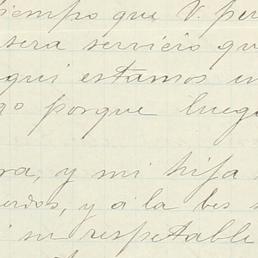 tiempo que V. per
sera servicio qu
qui estamos un
go porque luego
ra, y mi hija
erdos, y á la bes
i su respetable